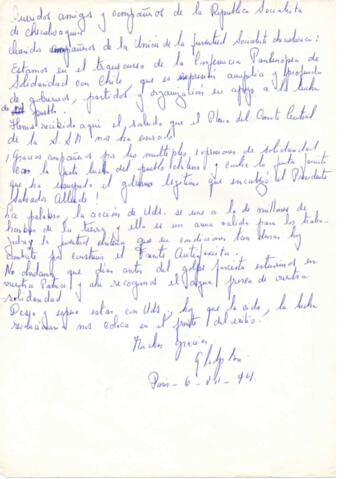 Queridos amigos y compañeros de la Republica Socialista
de Checoslovaquia
compañeros de la Union de la Juventud Socialista checoslovaca:
Estamos en el transcurso de la Conferencia Paneuropea de
Solidaridad con Chile que es expresión amplia y profunda
de gobiernos, partidos y organizaciones en apoyo a la lucha
de pueblo.
Hemos recibido aquí el saludo que el Pleno del Comité Central
de la nos ha enviado
¡Gracias compañeros por las multiples expresiones de solidaridad
con la justa lucha del pueblo chileno y contra la junta fascista
que ha usurpado el gobierno legítimo que encabezó el Presidente
Salvador Allende!
La palabra, la acción de Uds. se une a la de millones de
hombres de la tierra y ella es un arma valida para los traba-
jadores y la juventud chilena que en condiciones tan duras hoy
combate por construir el Frente Antifascista.
No olvidamos que días antes del golpe fascista estuvimos en
vuestra Patria y allí recogimos el de vuestra
solidaridad
Deseo y espero estar con Uds. y hoy que la la lucha
nos coloca en el frente del exilio.
Muchas gracias
Gladys
Paris - 6 - 74.